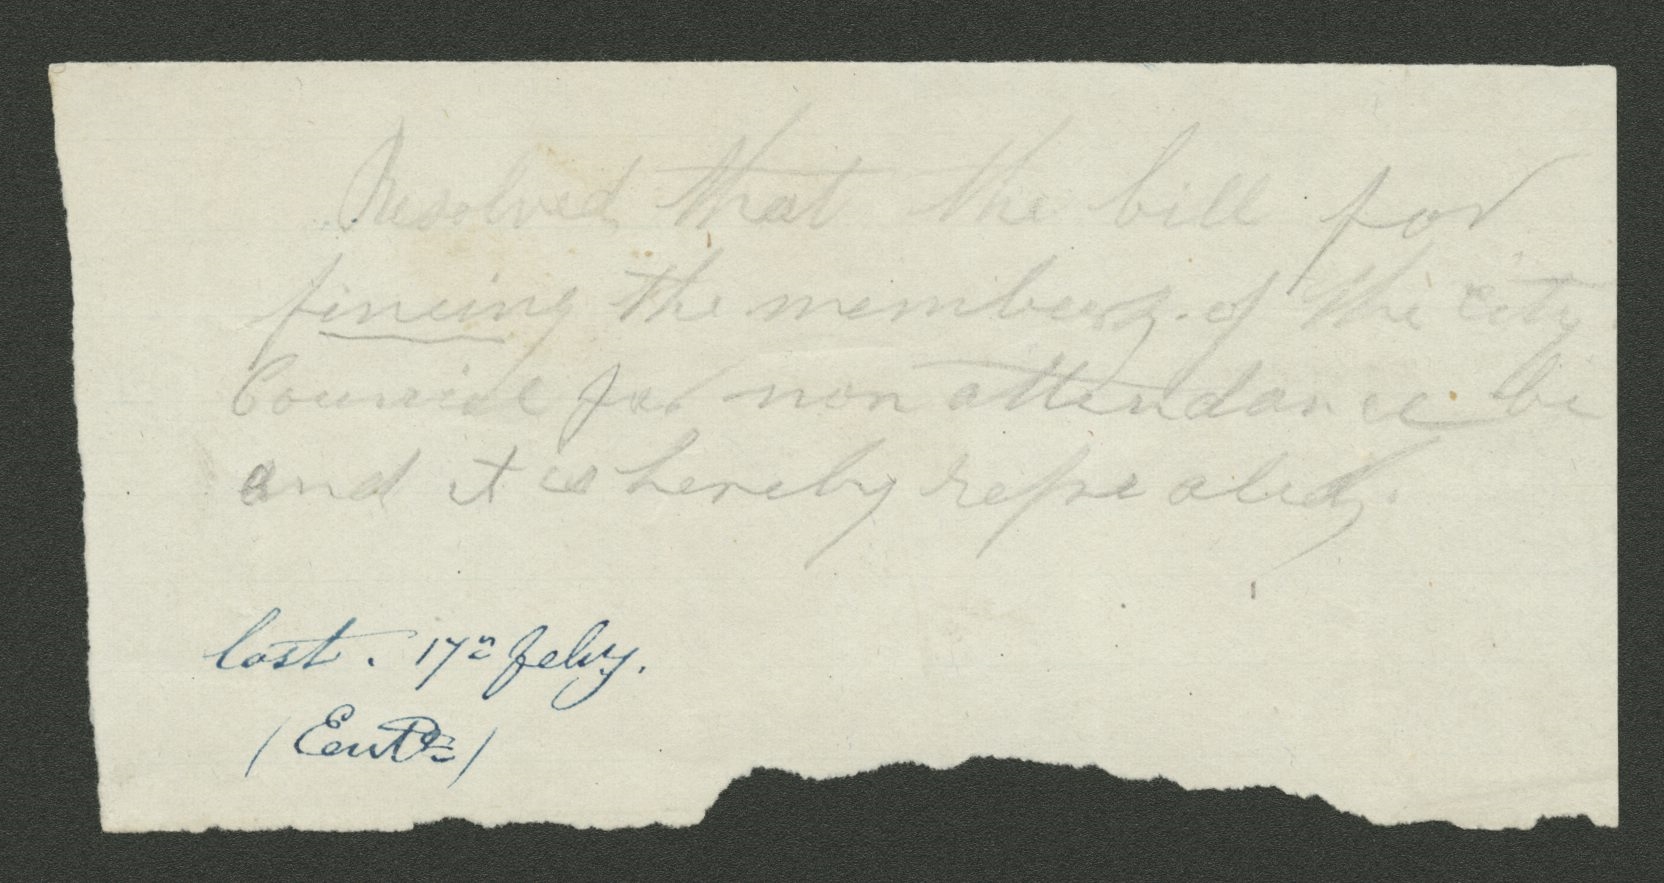 Resolved that the bill for
fineing the members of the City
Council for non attendance be
and it is hereby repealed.
lost. 17th feby.
(Entd)